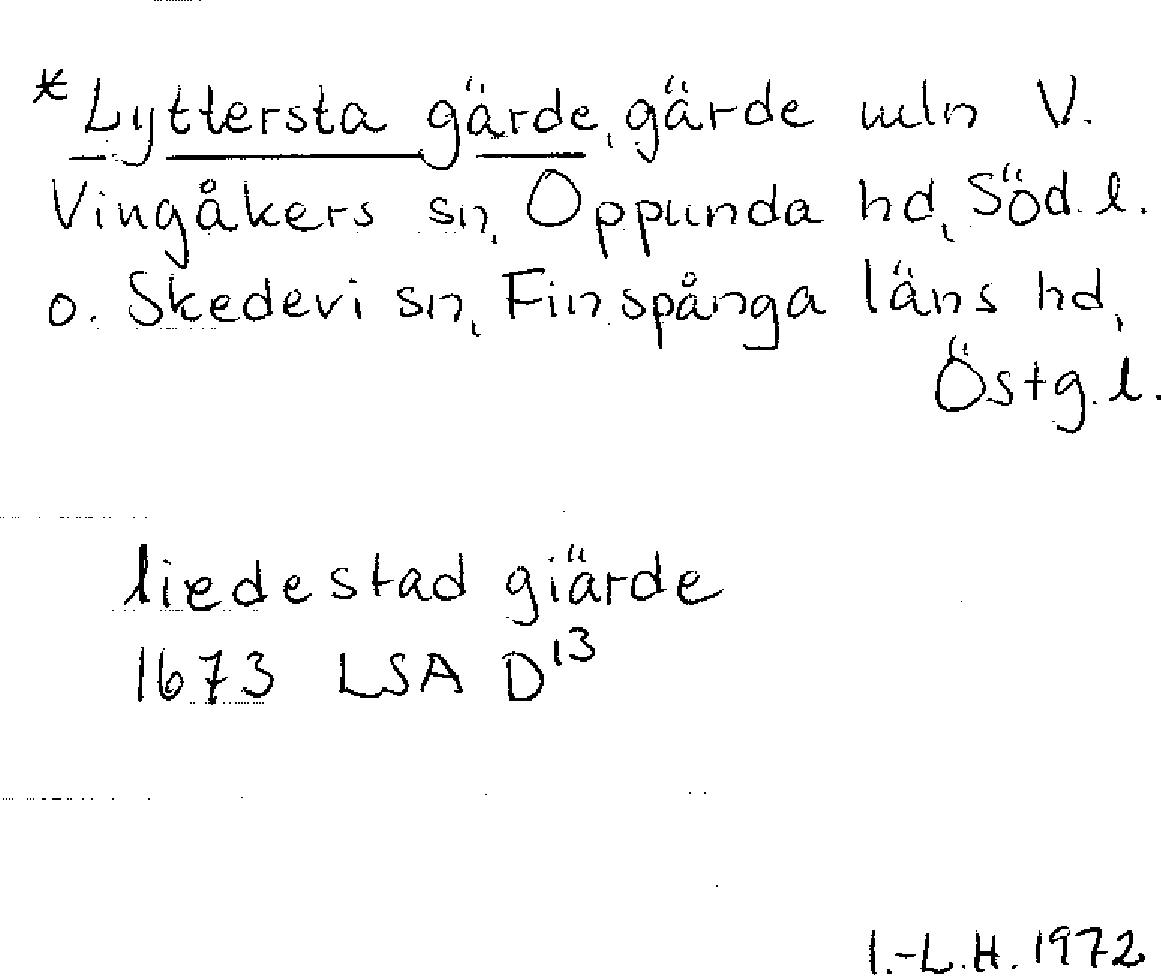 *Lyttersta gärde, gärde mln V.
Vingåkers sn, Oppunda hd, Söd. l.
o. Skedevi sn, Finspånga läns hd,
Östg. l.
liedestad giärde
1673 LSA D¹³
I.-L.H. 1972